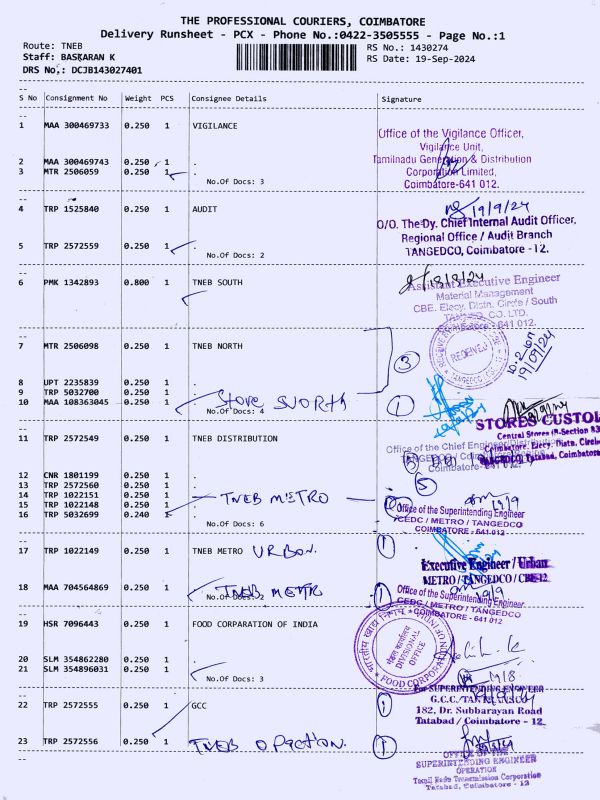 THE PROFESSIONAL COURIERS, COIMBATORE
Delivery Runsheet - PCX - Phone No.:0422-3505555 - Page No.:1
Route: TNEB
RS No.: 1430274
Staff: BASKARAN K
RS Date: 19-Sep-2024
DRS No.: DCJB143027401
S No Consignment No Weight PCS Consignee Details Signature
1 MAA 300469733 0.250 1 VIGILANCE
Office of the Vigilance Officer,
Vigilance Unit,
Tamilnadu Generation & Distribution
Corporation Limited,
Coimbatore-641 012.
2 MAA 300469743 0.250 1 .
3 MTR 2506059 0.250 1 .
No.Of Docs: 3
4 TRP 1525840 0.250 1 AUDIT
19/9/24
O/O. The Dy. Chief Internal Audit Officer,
Regional Office / Audit Branch
TANGEDCO, Coimbatore - 12.
5 TRP 2572559 0.250 1 .
No.Of Docs: 2
6 PMK 1342893 0.800 1 TNEB SOUTH
Assistant Executive Engineer
Material Management
CBE. Elecy. Distn. Circle / South
RECEIVED
7 MTR 2506098 0.250 1 TNEB NORTH
3
8 UPT 2235839 0.250 1 .
9 TRP 5032700 0.250 1 .
10 MAA 108363045 0.250 1 .
Store North
1
No.Of Docs: 4
STORES CUSTO
Central Stores
11 TRP 2572549 0.250 1 TNEB DISTRIBUTION
Office of the Chief Engineer/Distribution
Coimbatore-641
12 CNR 1801199 0.250 1 .
13 TRP 2572560 0.250 1 .
5
14 TRP 1022151 0.250 1 .
TNEB METRO
15 TRP 1022148 0.250 1 .
16 TRP 5032699 0.240 1 .
No.Of Docs: 6
Office of the Superintending Engineer
CEDC / METRO / TANGEDCO
COIMBATORE - 641 012
17 TRP 1022149 0.250 1 TNEB METRO URBAN.
1
Executive Engineer / Urban
METRO / TANGEDCO / CBE-12
18 MAA 704564869 0.250 1 .
TNEB METRO
1
No.Of Docs: 2
Office of the Superintending Engineer
CEDC / METRO / TANGEDCO
COIMBATORE - 641 012
19 HSR 7096443 0.250 1 FOOD CORPARATION OF INDIA
DIVISIONAL OFFICE
FOOD CORPORATION
20 SLM 354862280 0.250 1 .
21 SLM 354896031 0.250 1 .
No.Of Docs: 3
For SUPERINTENDING ENGINEER
G.C.C./TANTRANSCO
182, Dr. Subbarayan Road
Tatabad / Coimbatore - 12.
22 TRP 2572555 0.250 1 GCC
23 TRP 2572556 0.250 1
1
OFFICE OF THE
SUPERINTENDING ENGINEER
OPERATION
Tamil Nadu Transmission Corporation
Tatabad, Coimbatore - 12